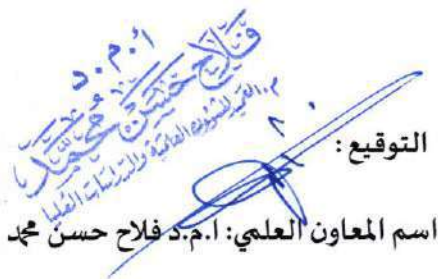 أ.م.د
فلاح حسن محمد
م. العميد للشؤون العلمية والدراسات العليا
التوقيع :
اسم المعاون العلمي: ا.م.د فلاح حسن محمد